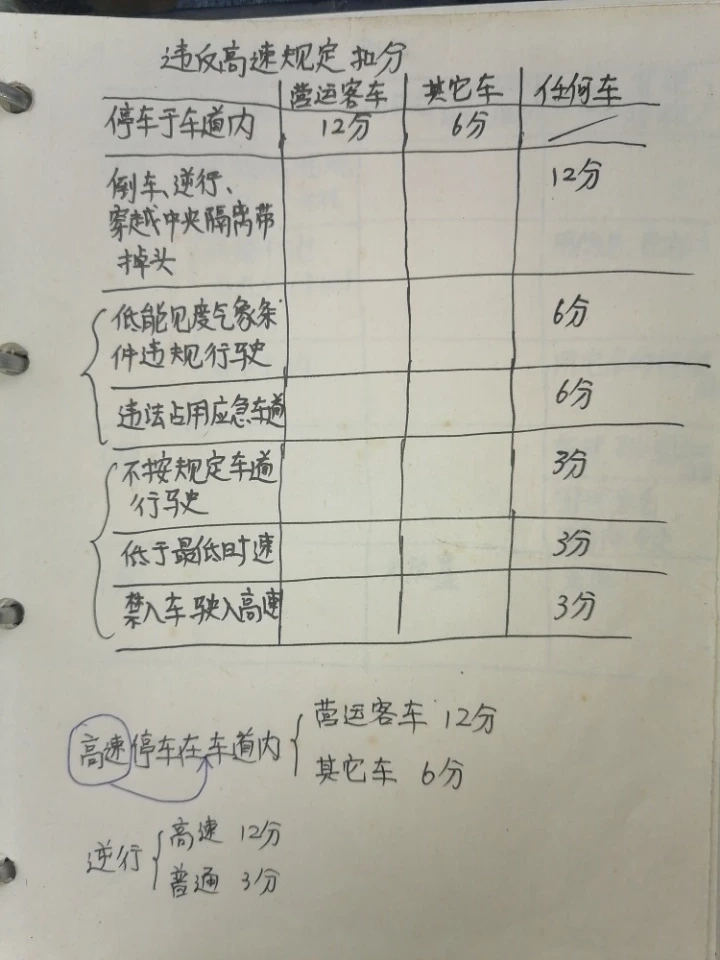 违反高速规定扣分
营运客车 其它车 任何车
停车于车道内 12分 6分
倒车、逆行、 12分
穿越中央隔离带
掉头
低能见度气象条 6分
件违规行驶
违法占用应急车道 6分
不按规定车道 3分
行驶
低于最低时速 3分
禁入车驶入高速 3分
营运客车 12分
高速停车在车道内
其它车 6分
高速 12分
逆行
普通 3分